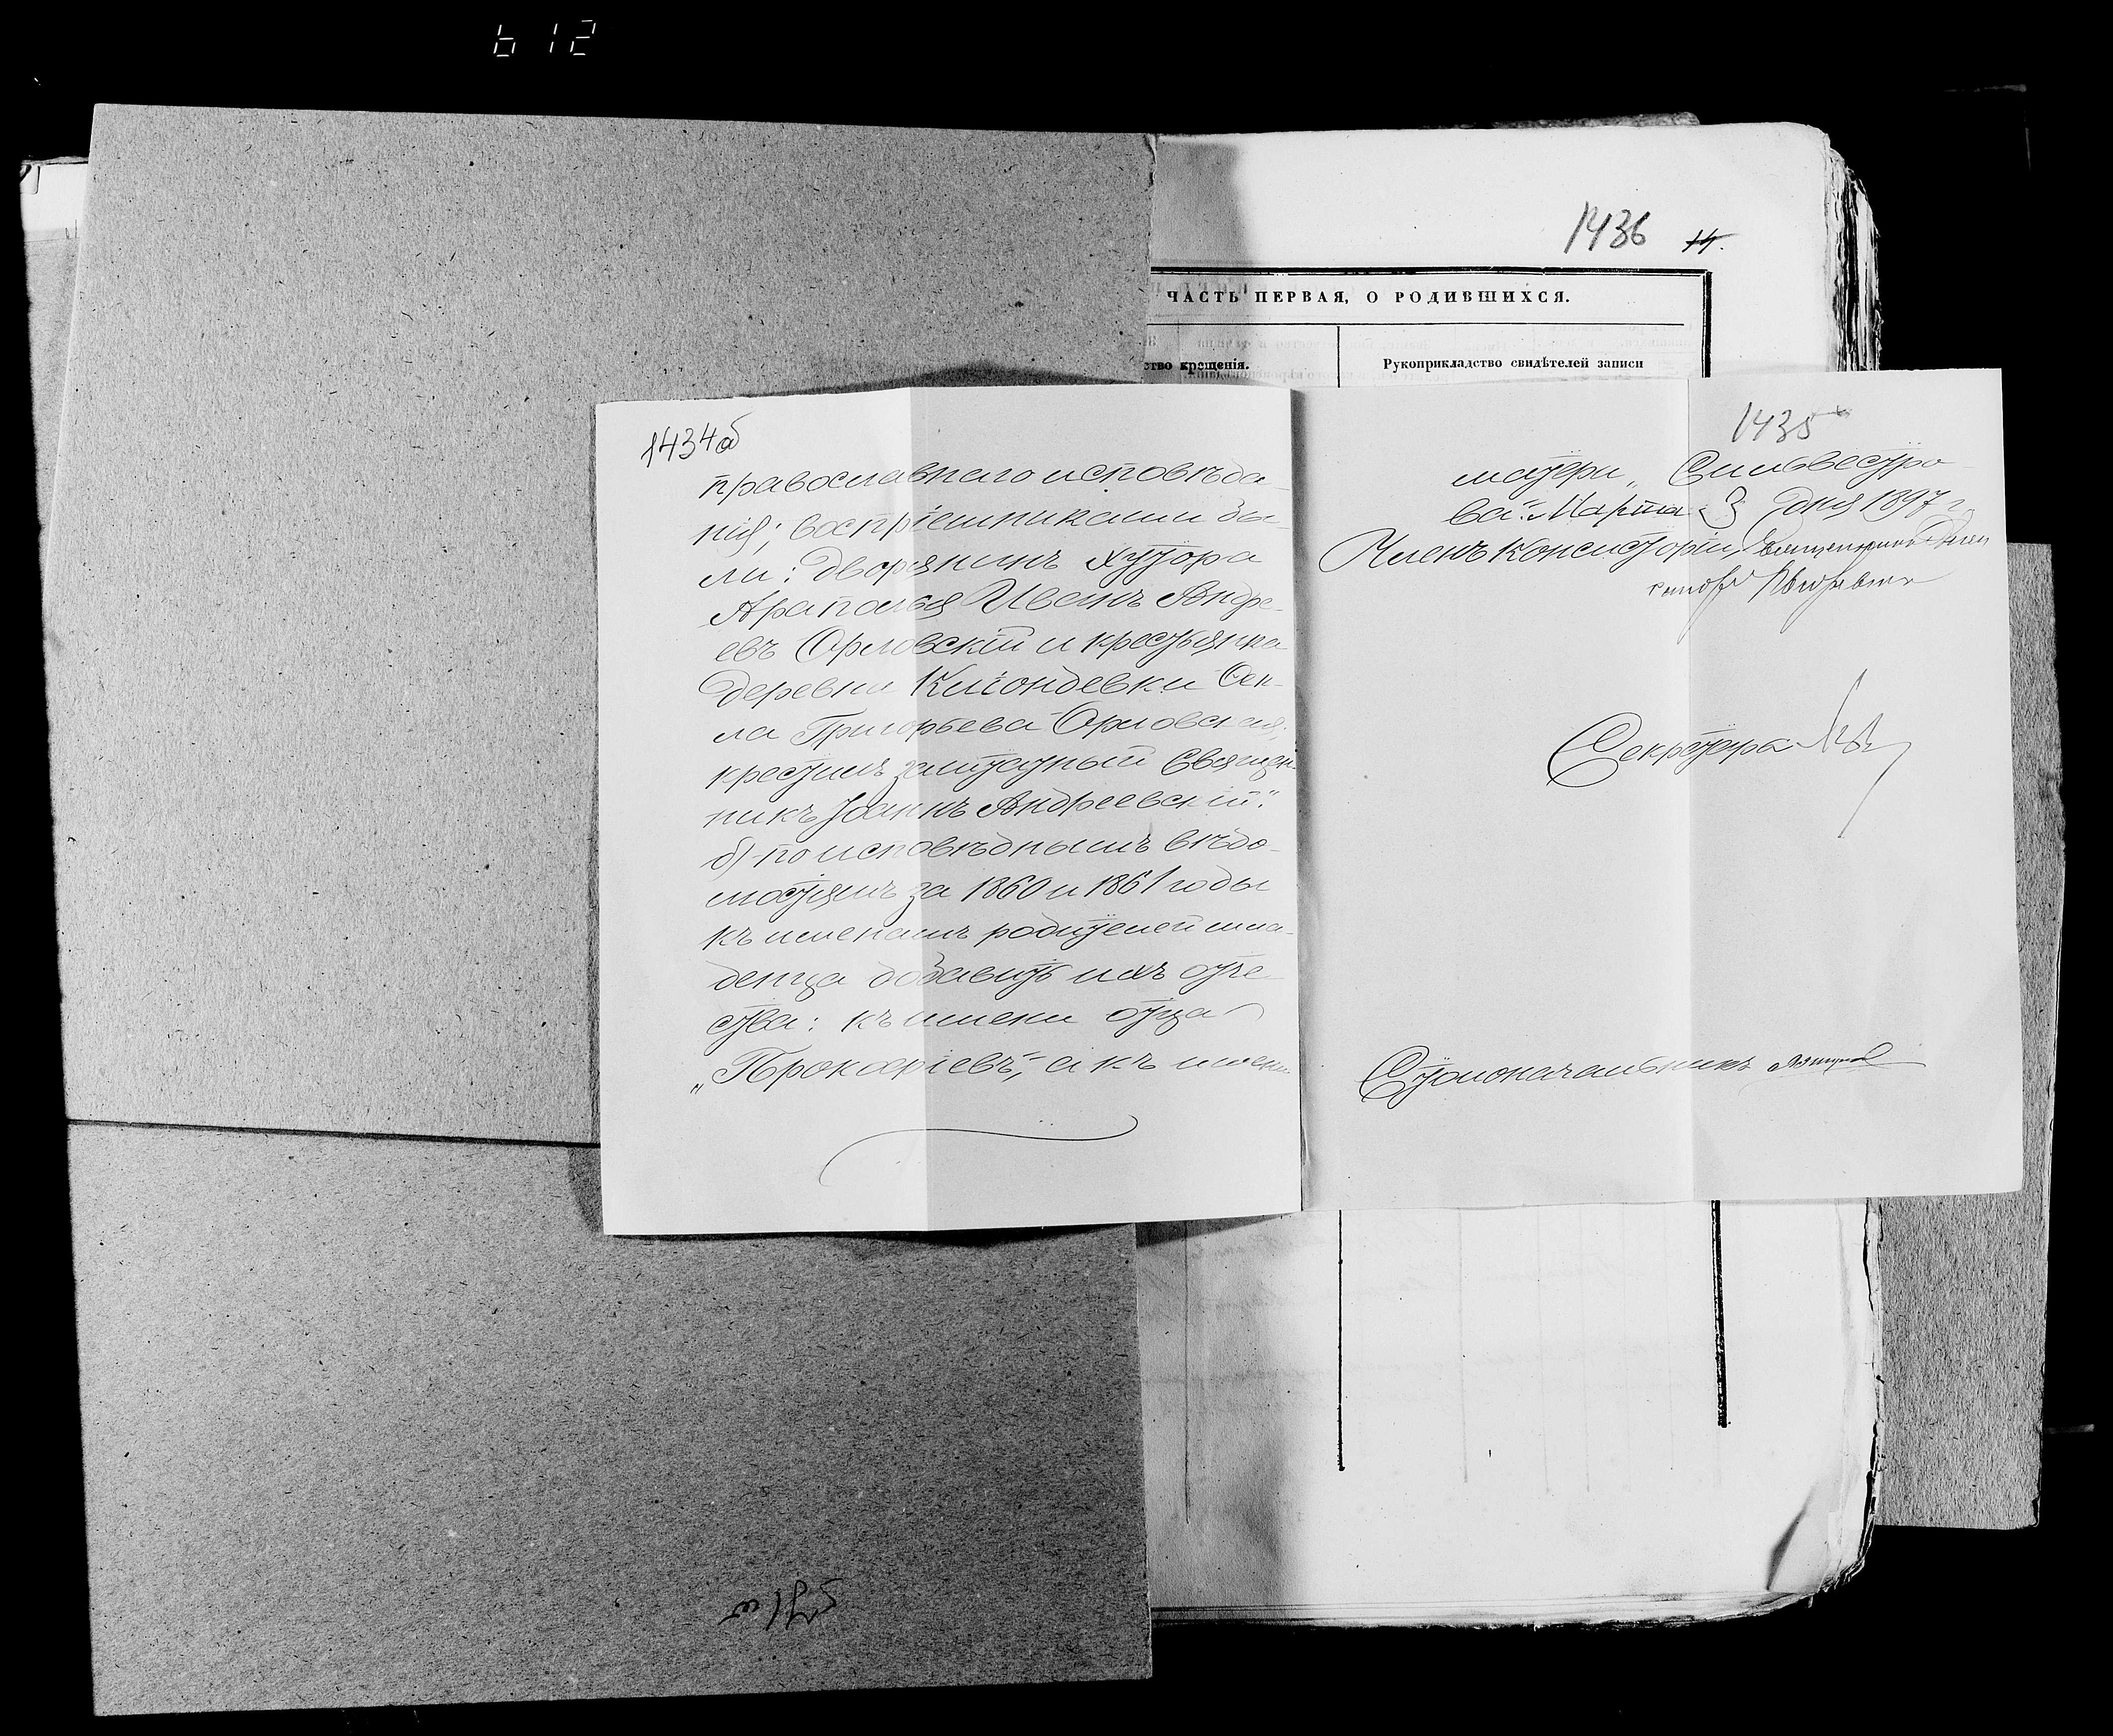 612
1436 14.
ЧАСТЬ ПЕРВАЯ, О РОДИВШИХСЯ.
ство крещенія.
Рукоприкладство свидѣтелей записи
1434об
православнаго исповѣда-
нія; воспріемниками бы-
ли: дворянинъ хутора
Араполья Иванъ Андре-
евъ Орловскій и крестьянка
деревни Фек-
ла Григорьева Орловская;
крестилъ заштатный Священ-
никъ Іоаннъ Андреевскій."
б) по исповѣднымъ вѣдо-
мостямъ за 1860 и 1861 годы
къ именамъ родителей мла-
денца добавить ихъ отче-
ства: къ имени отца
„Прокофіевъ", а къ имени
1435
матери „Сильвестро-
ва". Марта 3 дня 1897 г.
Членъ Консисторіи, Священникъ
Секретарь
Столоначальникъ